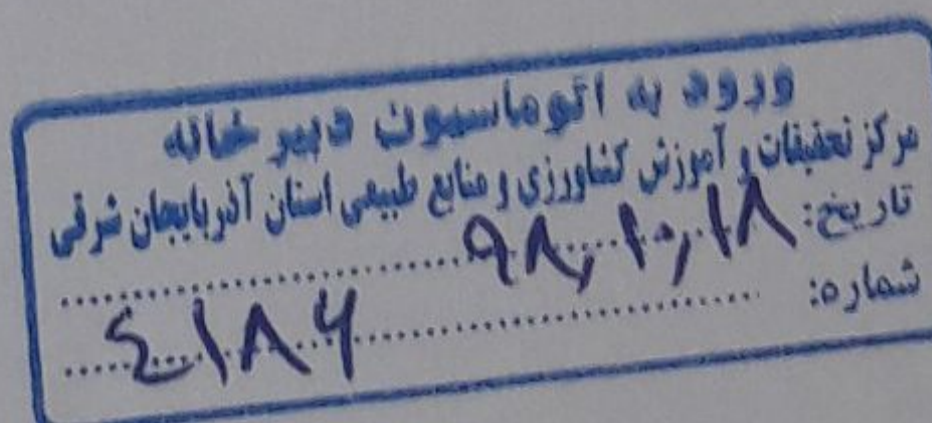 ورود به اتوماسیون دبیرخانه
مرکز تحقیقات و آموزش کشاورزی و منابع طبیعی استان آذربایجان شرقی
تاریخ: ۹۸,۱۰,۱۸
شماره: ٤١٨۶